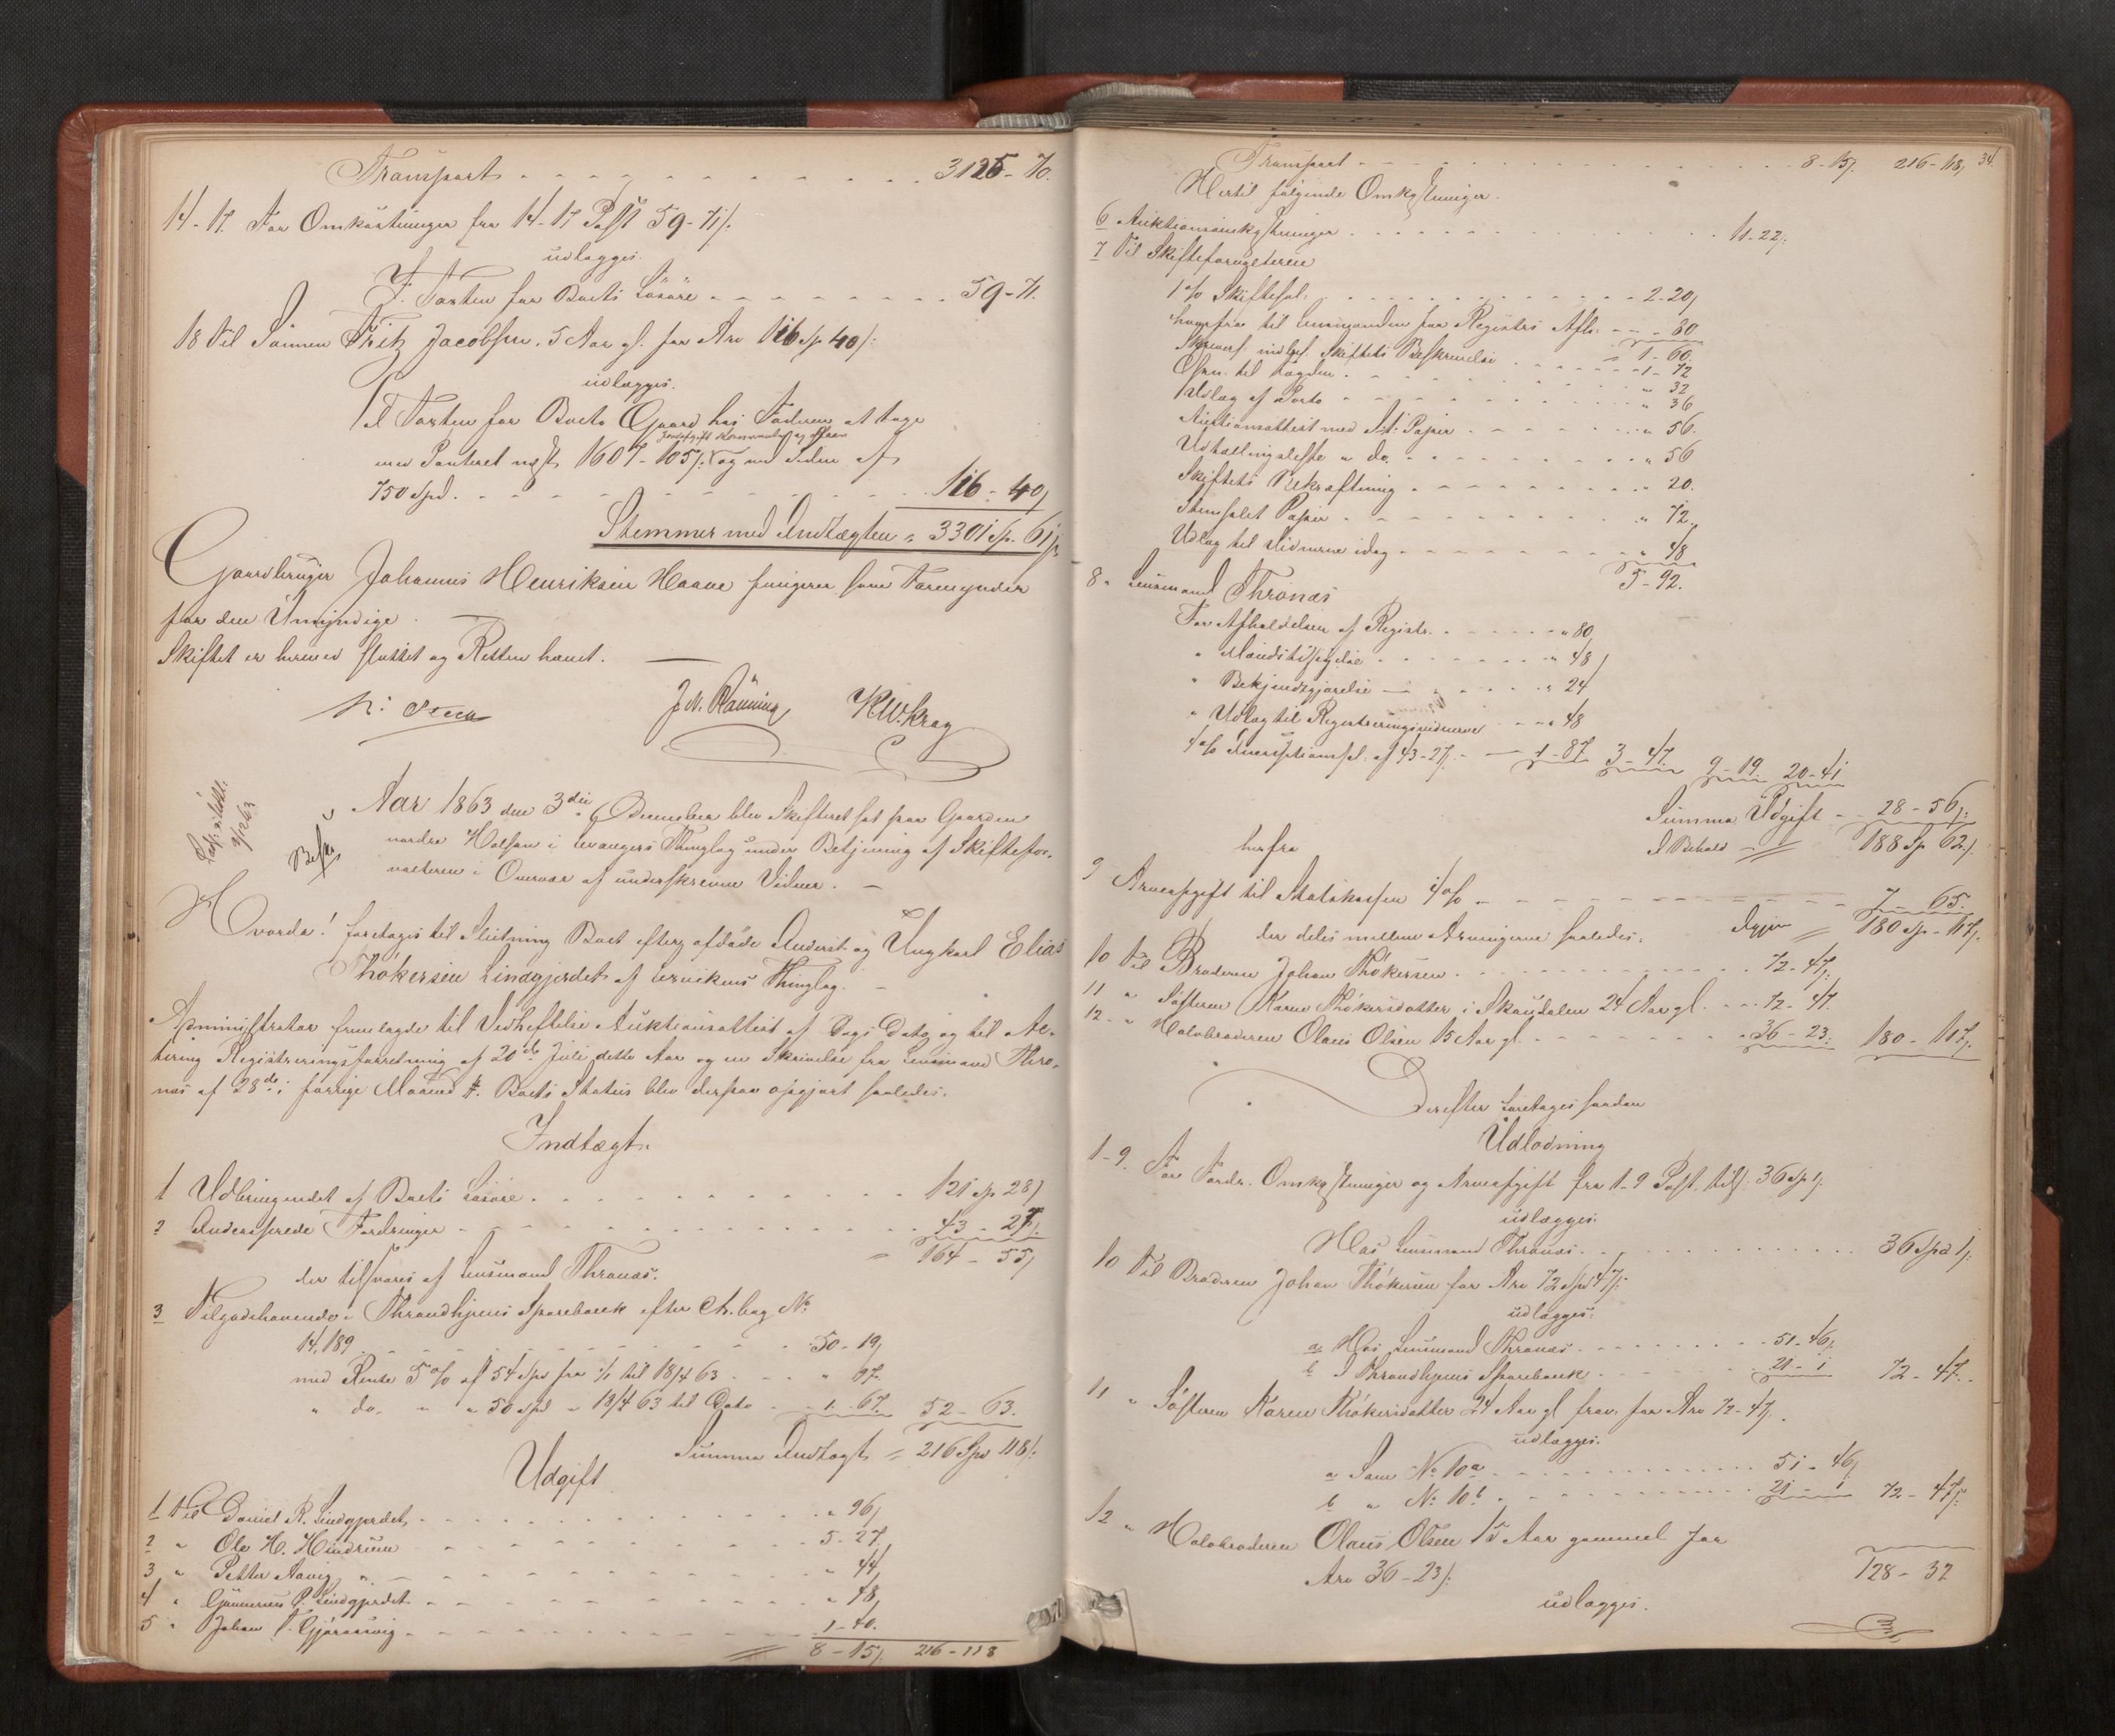 Transport 3125 - 70.
14-17. For Omkostninger fra 14-17 Post 59-71/.
udlægges.
IVærten for Boets Løsøre 59-71.
18 Til Sønnen Fritz Jacobsen, 5 Aar gl. for Arv 116 Sp 40/:
udlægges.
I Værten for Boets Gaard hos Faderen at tage
med Panteret næst 1607-105/: og ved Siden af
750 Spd. 116 - 40/
Stemmer med Indtægten = 3301 Sp. 61/.
Gaardbruger Johannes Henriksen Haave fungerer som Formynder
for den Umyndige.
Skiftet er hermed sluttet og Retten hævet.
J. N. Rønning K W. Krag
Aar 1863 den 3die December blev Skifteret sat paa Gaarden
nordre Holsan i Levangers Thinglag under Betjening af Skiftefor-
valteren i Overvær af underskrevne Vidner. -
Hvorda! foretages til Slutning Boet efter afdøde Inderst og Ungkarl Elias
Thókersen Lindgjerdet af Levikens Thinglag. -
Administrator fremlagde til Vedheftelse Auktionsattest af Dags Dato og til Ac-
tering Registreringsforretning af 20de Juli dette Aar og en Skrivelse fra Lensmand Thro-
næs af 28de i forrige Maaned. Boets Status blev derpaa opgjort saaledes.
Indtægt.
1 Udbringendet af Boets Løsøre 121 Sp 28/
2 Indcasserede Fordringer 43 - 27/.
= 164 - 55/
der tilsvares af Lensmand Thronæs.
3 Tilgodehavende i Throndhjems Sparebank efter Ctr.bog No.
14,189 50-19/
med Rente 5 % af 54 Spd fra 1/1 til 18/4 63 " 97.
" do. " " 50 Spd " 18/4 63 til Dato 1. 67. 52 - 63.
Summa Indtægt = 216 Spd 118/:
Udgift
1 Til Daniel R. Lindgjerdet " 96/
2 " Ole H. Hindrum 5-27.
3 " Petter Aavig " 44/
4 " Gunnerus P. Lindgjerdet " 48/
5 " Johan T. Gjøraasvig 1-40.
8-15/. 216-118
Transport 8-15/. 216-118/ 34.
Hertil følgende Omkostninger.
6 Auktionsomkostninger 11-22/:
7 Til Skifteforvalteren
1 % Skiftesal: 2-20/
herfra til Lensmanden for Registrs Afh. " 80
= 1-60.
Skrivers. indbef. Skiftets Beskrivelse 1-72
" 32
Udlæg af Porto " 36
Auktionsattest med St: Papir " 56.
Udtællingsliste " do. " 56
Skiftets Bekræftning " 20.
Stemplet Papir " 72.
Udlæg til Vidnerne idag " 48
5-92.
8 " Lensmand Thronæs
For Afholdelsen af Registr. " 80/
" Mandstilsigelse " 48/
" Bekjendtgjørelse " 24
" Udlæg til Registreringsvidnerne " 48
4 % Incassationssal. af 43-27/. 1-87 3-47 9-19 20-41
Summa Udgift - 28-56/:
I Behold 188 Sp. 62/.
herfra
9 Arveafgift til Statskassen 4 % 7 - 65.
der deles mellem Arvingerne saaledes: Igjen = 180 Sp - 117/.
10 Til Broderen Johan Thókersen 72-47/:
11 " Søsteren Karen Thókersdatter i Skaudalen 24 Aar gl. 72-47.
12 " Halvbroderen Olaus Olsen 15 Aar gl. 36-23: 180-117/.
Derefter foretages saadan
Udlodning
1-9. For Fordr. Omkostninger og Arveafgift fra 1-9 Post tils. 36 Sp 1/.
udlægges.
Hos Lensmand Thronæs. 36 Spd 1/:
10 Til Broderen Johan Thókersen for Arv 72 Spd 47/:
udlægges:
a Hos Lensmand Thronæs 51-46/:
b I Throndhjems Sparebank 21-1 72-47.
11 " Søsteren Karen Thókersdatter 24 Aar gl frav. for Arv 72-47/.
udlægges.
a Som No 10a 51-46/
b " No 10b. 21-1 72-47/:
12 " Halvbroderen Olaus Olsen 15 Aar gammel for
Arv 36-23/: 128-32
udlægges.